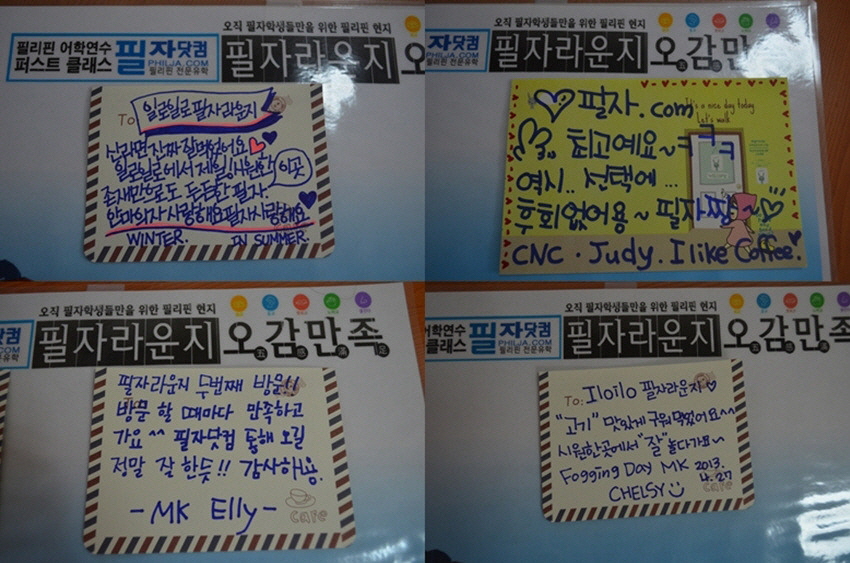 오직 필자학생들만을 위한 필리핀 현지
필리핀 어학연수
퍼스트 클래스
필자닷컴
PHILJA.COM
필리핀 전문유학
필자라운지 오
To
일로일로 필자라운지
신라면 진짜 잘먹었어요
일로일로에서 제일 시원한 이곳
존재만으로도 든든한 필자
안마의자 사랑해요 필자 사랑해요
WINTER. IN SUMMER.
오직 필자학생들만을 위한 필리핀 현지
자닷컴
PHILJA.COM
필리핀 전문유학
필자라운지 오감만
五 感 滿
It's a nice day today
Let's walk
필자.com
최고예요~ㅋㅋㅋ
역시.. 선택에...
후회없어용~ 필자짱~
CNC. Judy. I like Coffee.
오직 필자학생들만을 위한 필리핀 현지
닷컴
A.COM
전문유학
필자라운지 오감만족
五 感 滿 足
필자라운지 두번째 방문!!
방문 할 때마다 만족하고
가요^^ 필자닷컴 통해 오길
정말 잘 한듯!! 감사해용.
- MK Elly -
cafe
오직 필자학생들만을 위한 필리핀 현지
어학연수
클래스
필자닷컴
PHILJA.COM
필리핀 전문유학
필자라운지 오감만족
五 感 滿
To: Iloilo 필자라운지♡
"고기" 맛있게 구워먹었어요^^
시원한곳에서 "잘" 놀다가요~
Fogging Day MK 2013.
4.27
CHELSY
cafe